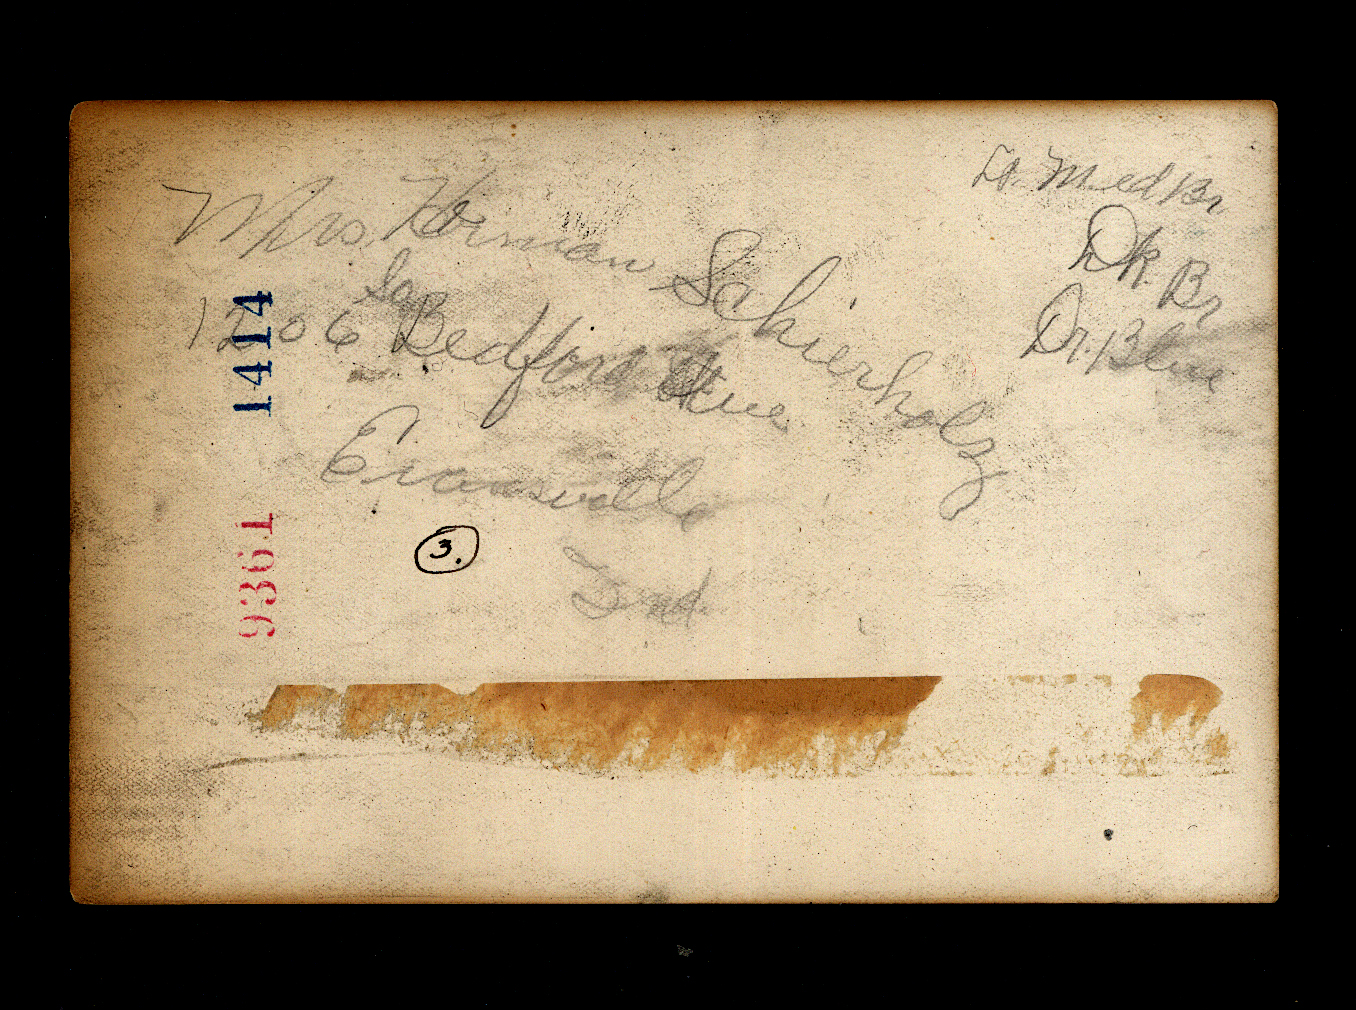 Mrs. Herman Schierholz
So
1206 Bedford Ave.
Evansville
Ind.
Lt. Med Br
Dk. Br
Dr. Blue
1414
9361
3.